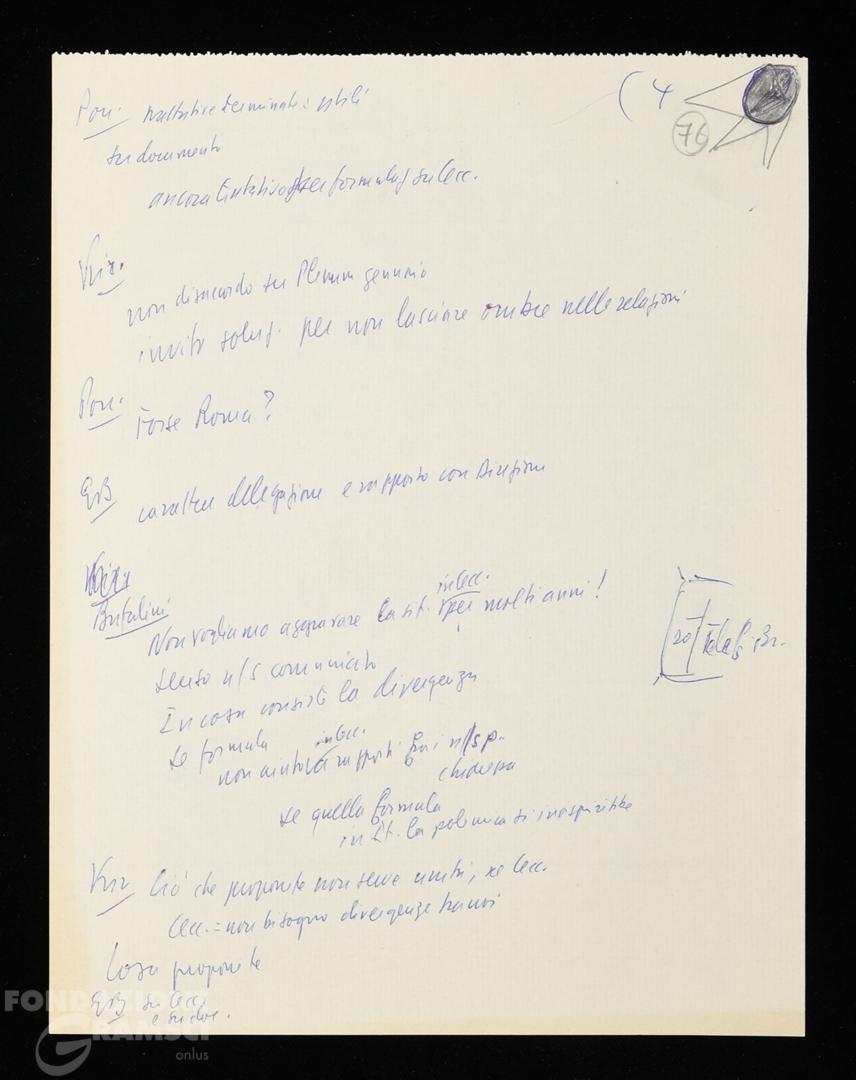 (4
76
Pon. trattative terminate: utili
su documento
ancora tentativo per formulaz su Cec.
Kir.
non disaccordo su Plenum gennaio
invito soluz. per non lasciare ombre nelle relazioni
Pon. Forse Roma?
EB carattere delegazione e rapporto con Direzione
Kir
Bufalini
Non vogliamo aggravare la sit. in Cec. per molti anni!
senso n/s comunicato
In cosa consiste la divergenza
se formula
non aiuta in Cec. rapporti fra i n/s p.
chiarezza
se quella formula
in It. la polemica si inasprirebbe
Kir Ciò che proponete non serve unità, né Cec.
Cec. = non bisogno divergenze tra noi
Cosa proponete
EB su Cec.
e su doc.
20
Telef. Br.
FONDAZIONE
GRAMSCI
onlus